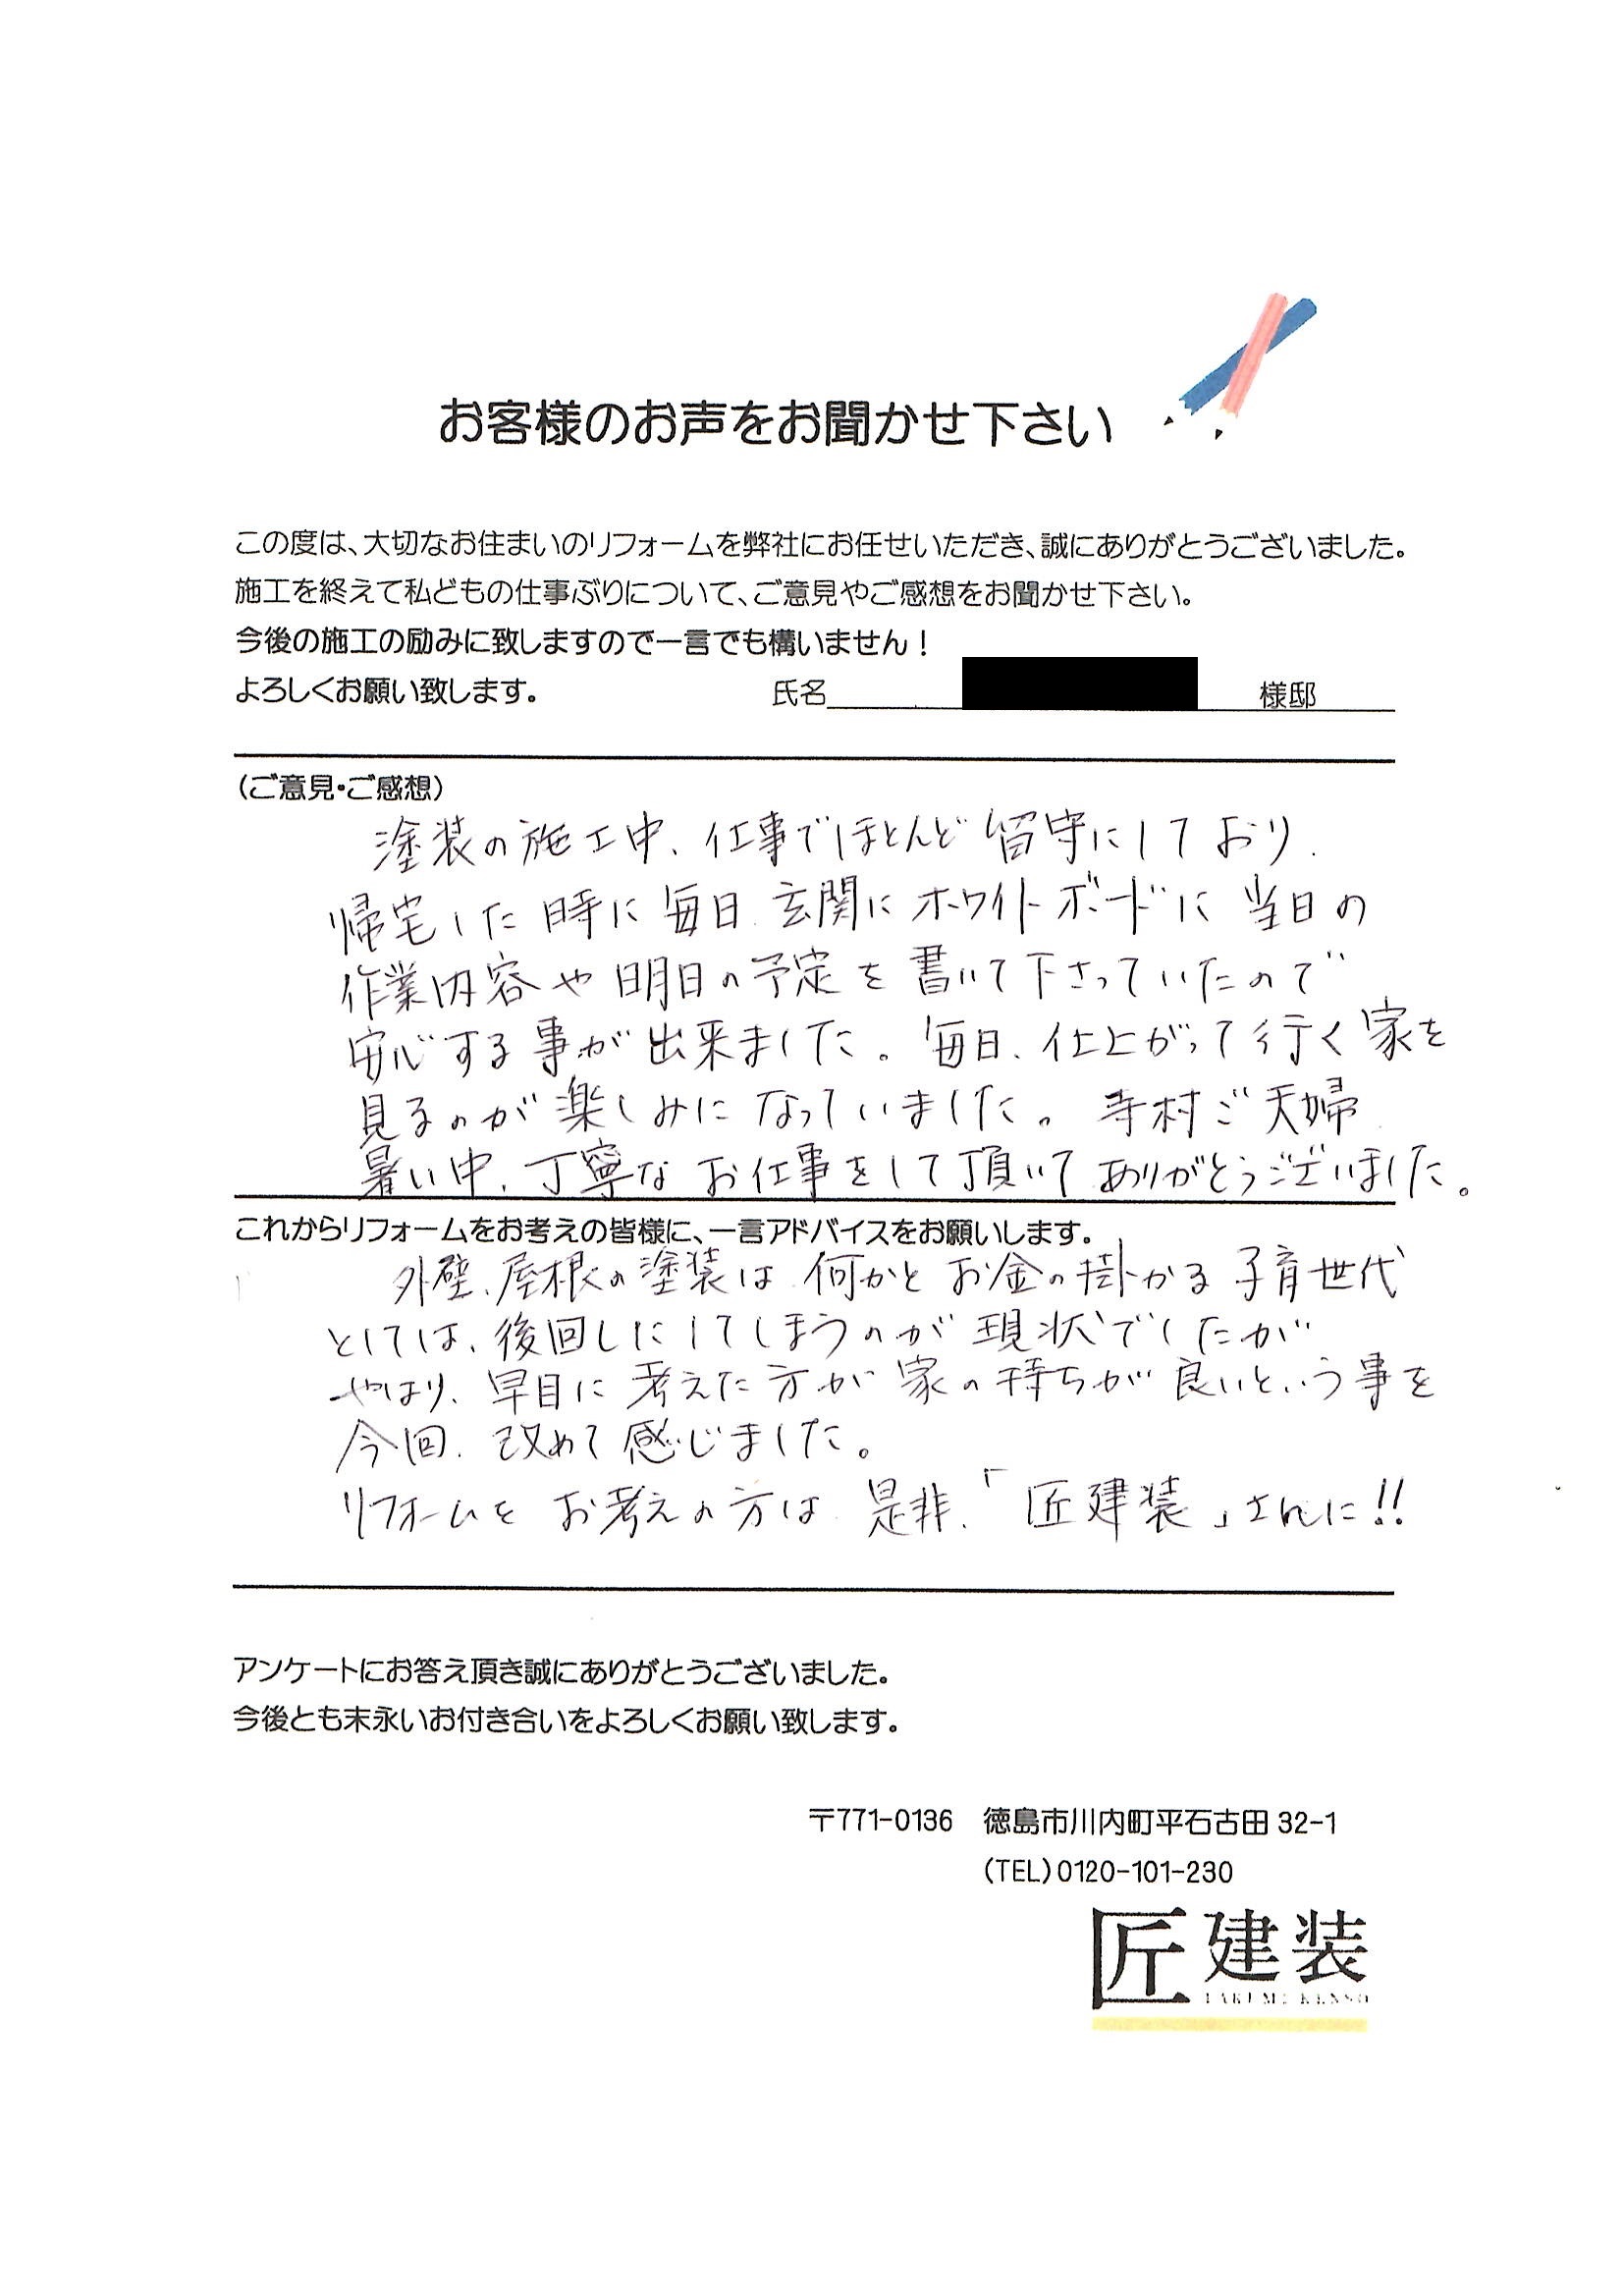 お客様のお声をお聞かせ下さい
この度は、大切なお住まいのリフォームを弊社にお任せいただき、誠にありがとうございました。
施工を終えて私どもの仕事ぶりについて、ご意見やご感想をお聞かせ下さい。
今後の施工の励みに致しますので一言でも構いません！
よろしくお願い致します。 氏名 様邸
（ご意見・ご感想）
塗装の施工中、仕事でほとんど留守にしており、
帰宅した時に毎日、玄関にホワイトボードに当日の
作業内容や明日の予定を書いて下さっていたので
安心する事が出来ました。毎日、仕上がって行く家を
見るのが楽しみになっていました。寺村ご夫婦
暑い中、丁寧なお仕事をして頂いてありがとうございました。
これからリフォームをお考えの皆様に、一言アドバイスをお願いします。
外壁、屋根の塗装は何かとお金の掛かる子育世代
としては、後回しにしてしまうのが現状でしたが
やはり、早目に考えた方が家の持ちが良いという事を
今回、改めて感じました。
リフォームをお考えの方は是非、「匠建装」さんに!!
アンケートにお答え頂き誠にありがとうございました。
今後とも末永いお付き合いをよろしくお願い致します。
〒771-0136 徳島市川内町平石古田 32-1
（TEL）0120-101-230
匠建装
TAKUMI KENSO